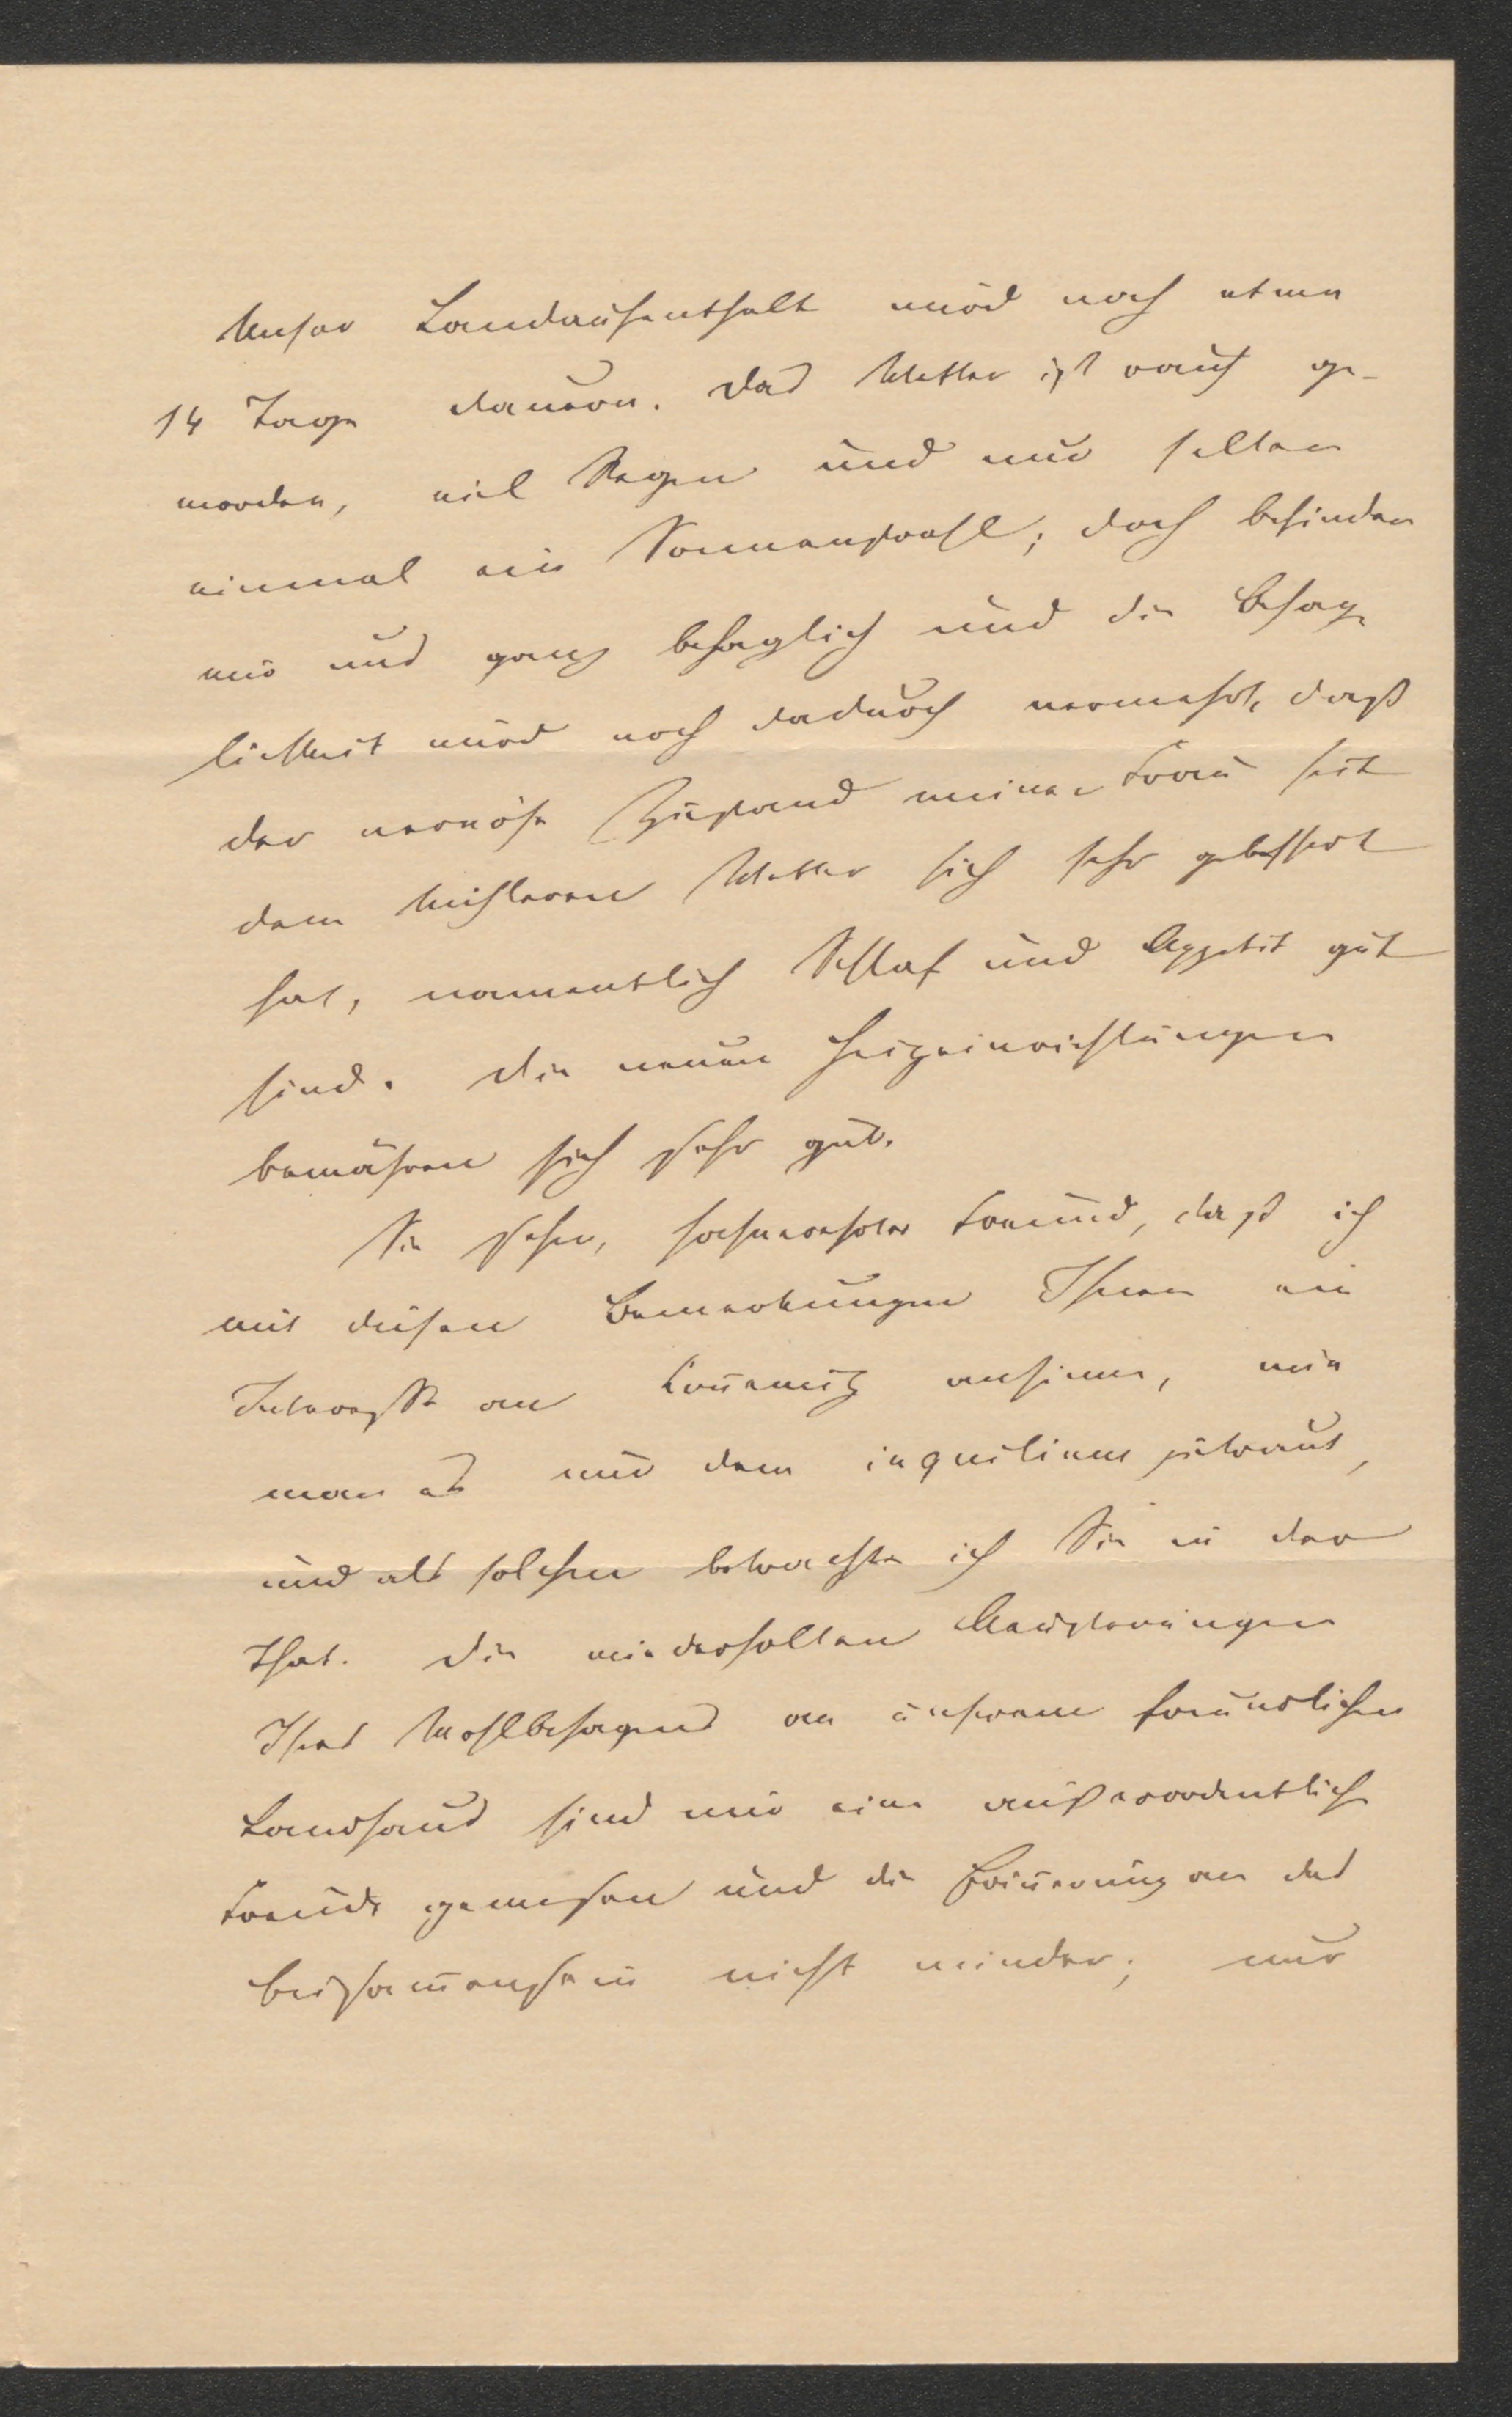 Unser Landaufenthalt wird noch etwa
14 Tage dauern. Das Wetter ist rauh ge-
worden, viel Regen und nur selten
einmal ein Sonnenstrahl; doch befinden
wir uns ganz behaglich und die Behag
lichkeit wird noch dadurch vermehrt, daß
der nervöse Zustand meiner Frau seit
dem kühleren Wetter sich sehr gebessert
hat, namentlich Schlaf und Appetit gut
sind. Die neuen Heizeinrichtungen
bewähren sich sehr gut.
Sie sehen, hochverehrter Freund, daß ich
mit diesen Bemerkungen Ihnen ein
Interesse an ansinne, wie
man es nur dem inquilinus zutraut,
und als solchen betrachte ich Sie in der
That. Die wiederholten Aeußerungen
Ihres Wohlbehagens an unserem freundlichen
Landhaus sind mir eine außerordentliche
Freude gewesen und die Erin̄erung an das
Beisam̄ensein nicht minder; nur